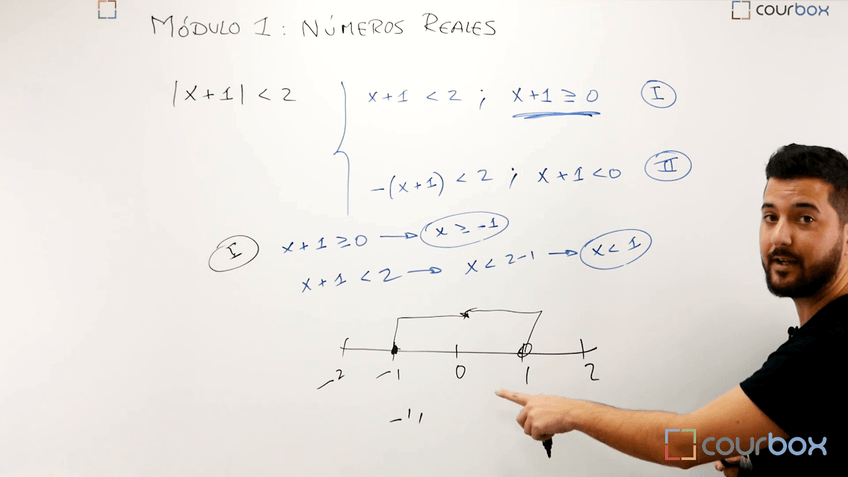 courbox
MÓDULO 1: NÚMEROS REALES
|x+1| < 2
x+1 < 2 ; x+1 ≥ 0 I
-(x+1) < 2 ; x+1 < 0 II
I x+1 ≥ 0 → x ≥ -1
x+1 < 2 → x < 2-1 → x < 1
-2 -1 0 1 2
courbox